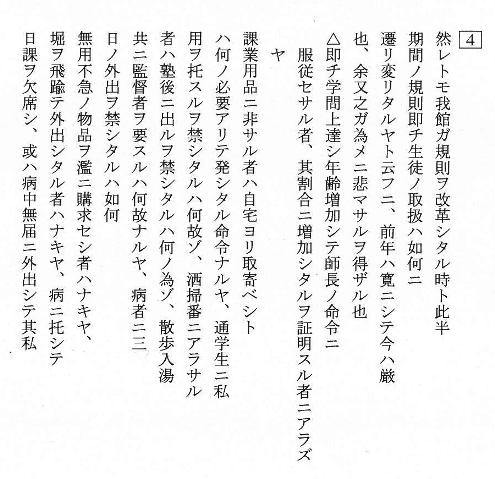 4
然レトモ我館ガ規則ヲ改革シタル時ト此半
期間ノ規則即チ生徒ノ取扱ハ如何ニ
遷リ変リタルヤト云フニ、前年ハ寛ニシテ今ハ厳
也、余又之ガ為メニ悲マサルヲ得ザル也
△即チ学問上達シ年齢増加シテ師長ノ命令ニ
服従セサル者、其割合ニ増加シタルヲ証明スル者ニアラズ
ヤ
課業用品ニ非サル者ハ自宅ヨリ取寄ベシト
ハ何ノ必要アリテ発シタル命令ナルヤ、通学生ニ私
用ヲ托スルヲ禁シタルハ何故ゾ、洒掃番ニアラサル
者ハ塾後ニ出ルヲ禁シタルハ何ノ為ゾ、散歩入湯
共ニ監督者ヲ要スルハ何故ナルヤ、病者ニ三
日ノ外出ヲ禁シタルハ如何
無用不急ノ物品ヲ濫ニ購求セシ者ハナキヤ、
堀ヲ飛踰テ外出シタル者ハナキヤ、病ニ托シテ
日課ヲ欠席シ、或ハ病中無届ニ外出シテ其私